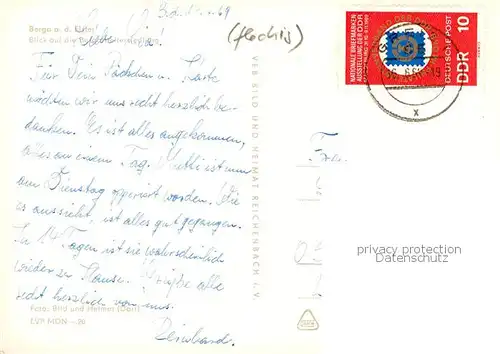 Berga a. d. Elster
Blick auf die
(flechsig)
Für Dein Päckchen u. Karte
möchten wir uns recht herzlich be-
danken. Es ist alles angekommen,
alles an einem Tag. Mutti ist nun
am Dienstag operiert worden. Wie
es aussieht, ist alles gut gegangen.
In 14 Tagen ist sie wahrscheinlich
wieder zu Hause. Grüße alle
recht herzlich von uns.
Reinhard.
Foto: Bild und Heimat (Darr)
VEB BILD UND HEIMAT REICHENBACH I. V.
NATIONALE BRIEFMARKEN-
AUSSTELLUNG DER DDR
DEUTSCHE POST
DDR 10
privacy protection
Datenschutz